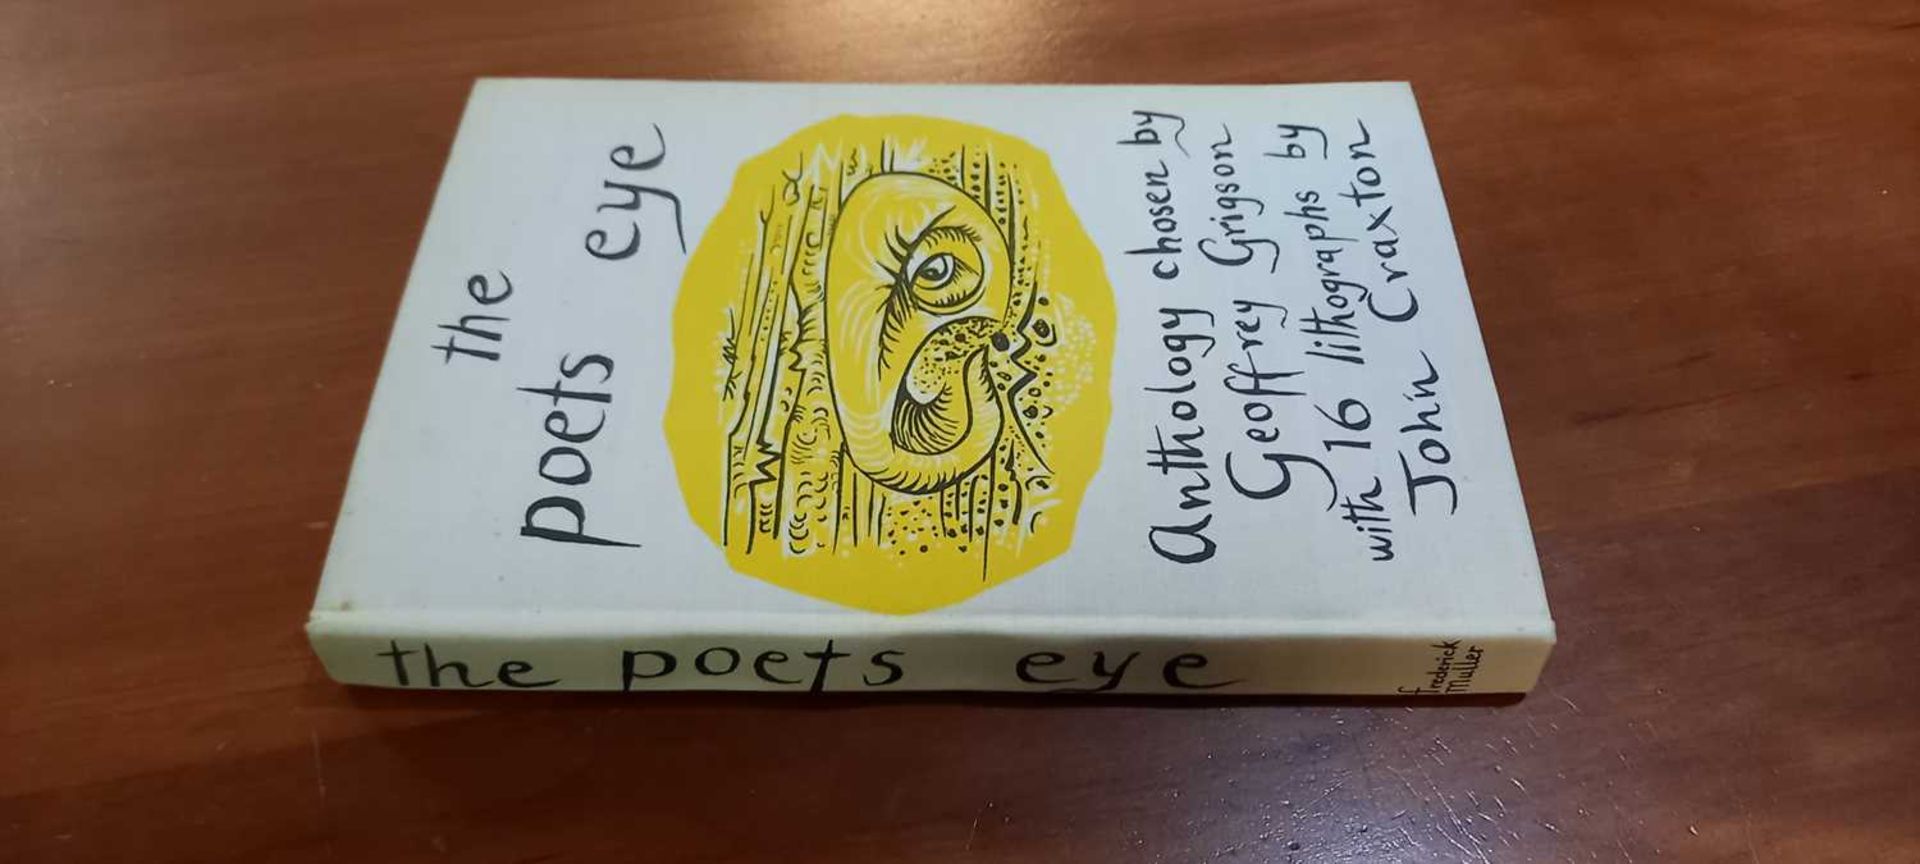 the
poets eye
Anthology chosen by
Geoffrey Grigson
with 16 lithographs by
John Craxton
the poets eye
Frederick
Muller